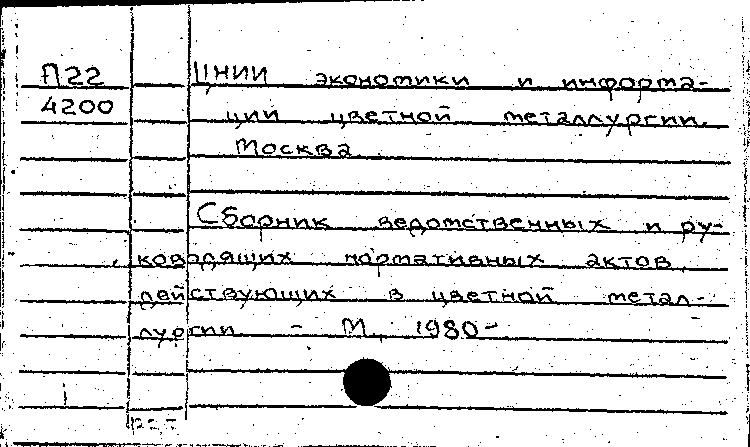 П22 ЦНИИ экономики и информа-
4200 ции цветной металлургии.
Москва
Сборник ведомственных и ру-
ководящих нормативных актов,
действующих в цветной метал-
лургии. - М., 1980-